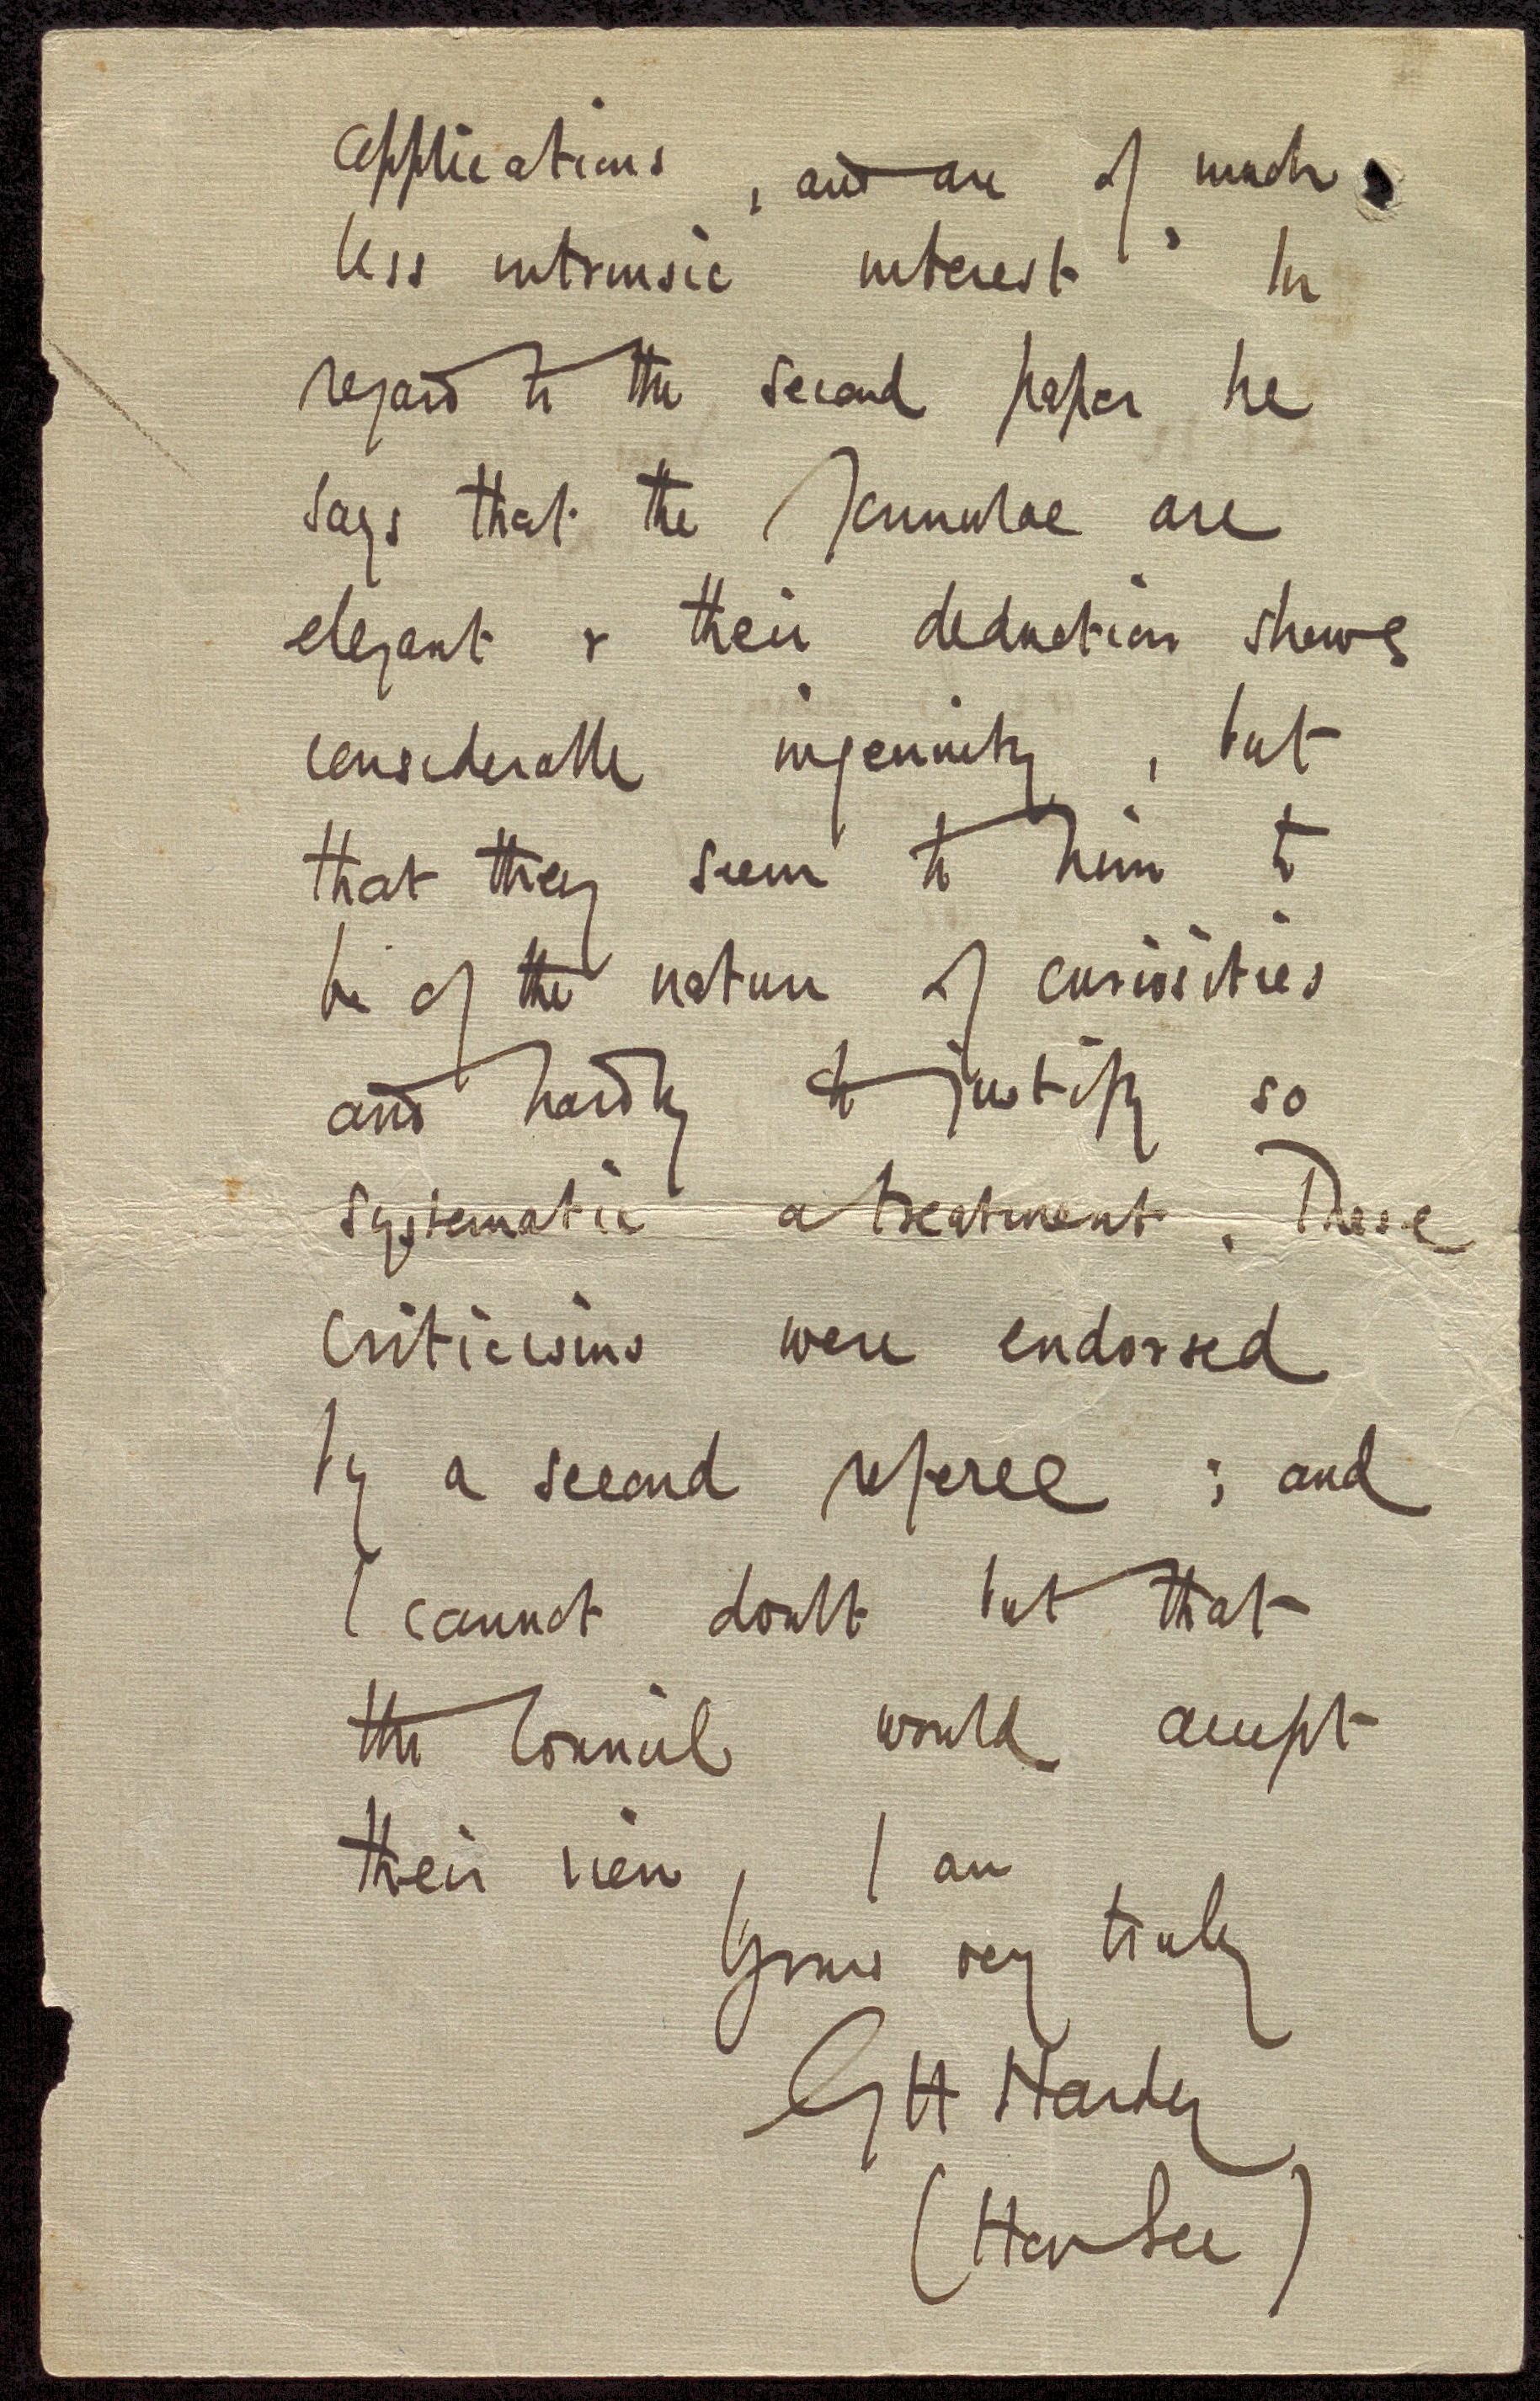 applications, and are of much
less intrinsic interest". In
regard to the second paper he
says that the formulae are
elegant & their deduction shows
considerable ingenuity, but
that they seem to him to
be of the nature of curiosities
and hardly to justify so
systematic a treatment. These
criticisms were endorsed
by a second referee; and
I cannot doubt but that
the Council would accept
their view, I am
Yours very truly
GH Hardy
(Hon Sec)